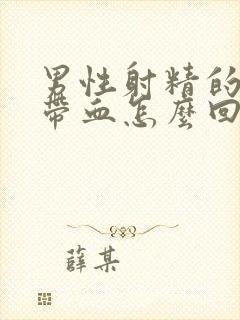 男性射精的
帶血怎麼回
薛某